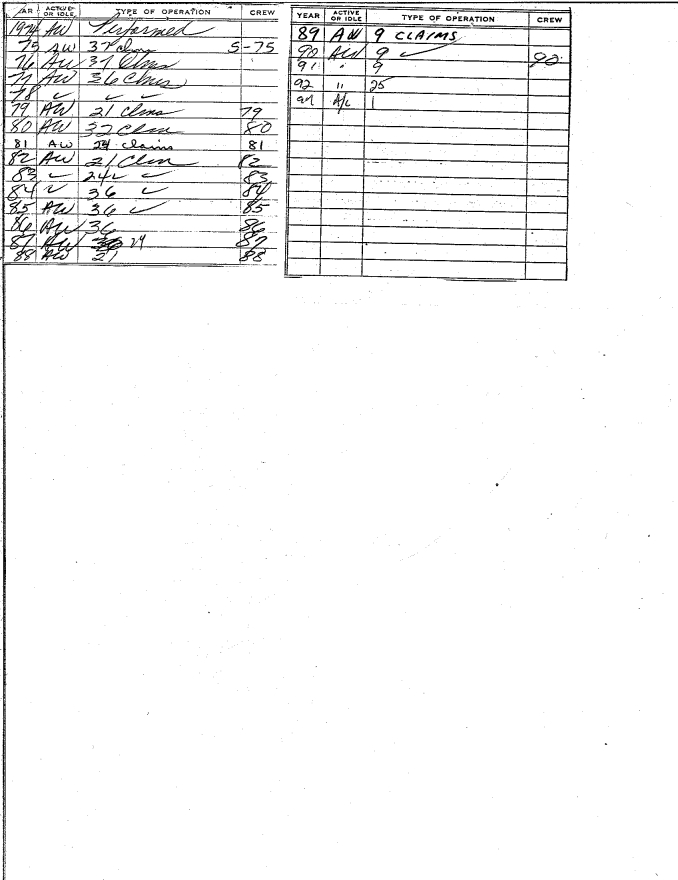 AR ACTIVE OR IDLE TYPE OF OPERATION CREW
1974 AW Performed
75 AW 37 clms 5-75
76 AW 37 Clms
77 AW 36 Clms
78 ✓ ✓ ✓
79 AW 21 Clms 79
80 AW 32 Clm 80
81 AW 24 claims 81
82 AW 21 Clm 82
83 ✓ 24 ✓ 83
84 ✓ 36 ✓ 84
85 AW 36 ✓ 85
86 AW 36 86
87 AW 24 87
88 AW 21 88
YEAR ACTIVE OR IDLE TYPE OF OPERATION CREW
89 AW 9 CLAIMS
90 AW 9 ✓ 90
91 " 9
92 " 25
A/L 1